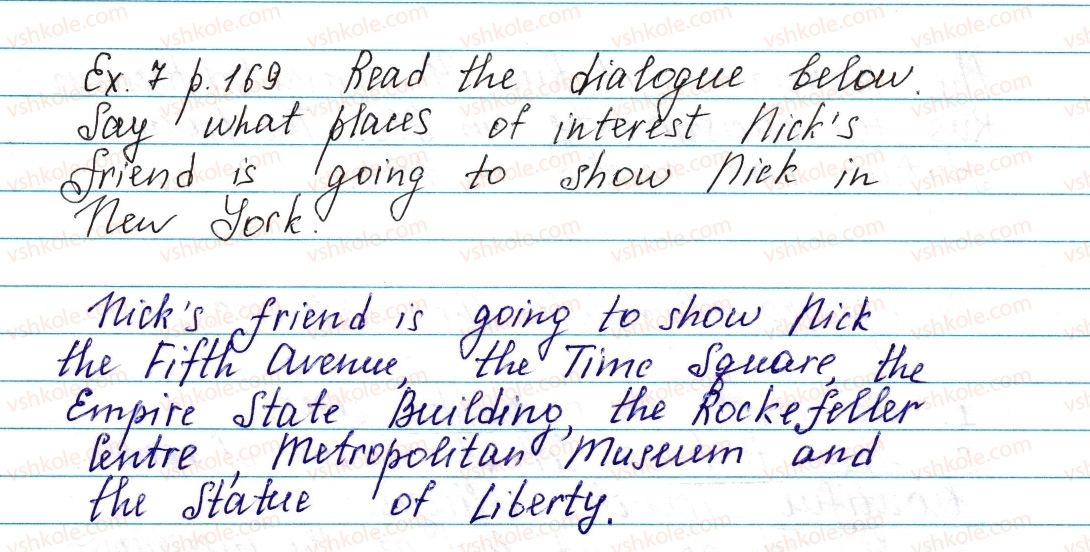 Ex. 7 p. 169 Read the dialogue below.
Say what places of interest Nick's
friend is going to show Nick in
New York.
Nick's friend is going to show Nick
the Fifth Avenue, the Time Square, the
Empire State Building, the Rockefeller
Centre, Metropolitan Museum and
the Statue of Liberty.